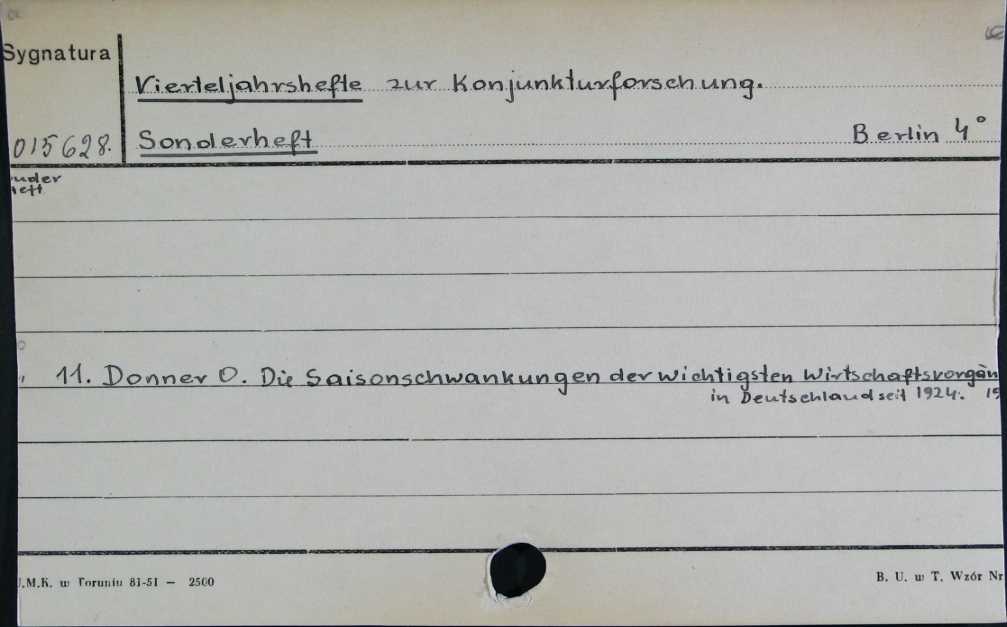 Sygnatura
Vierteljahrshefte zur Konjunkturforschung.
015628. Sonderheft Berlin 4°
11. Donner O. Die Saisonschwankungen der wichtigsten Wirtschaftsvorgän
in Deutschland seit 1924.
.M.K. w Toruniu 81-51 — 2500
B. U. w T. Wzór Nr